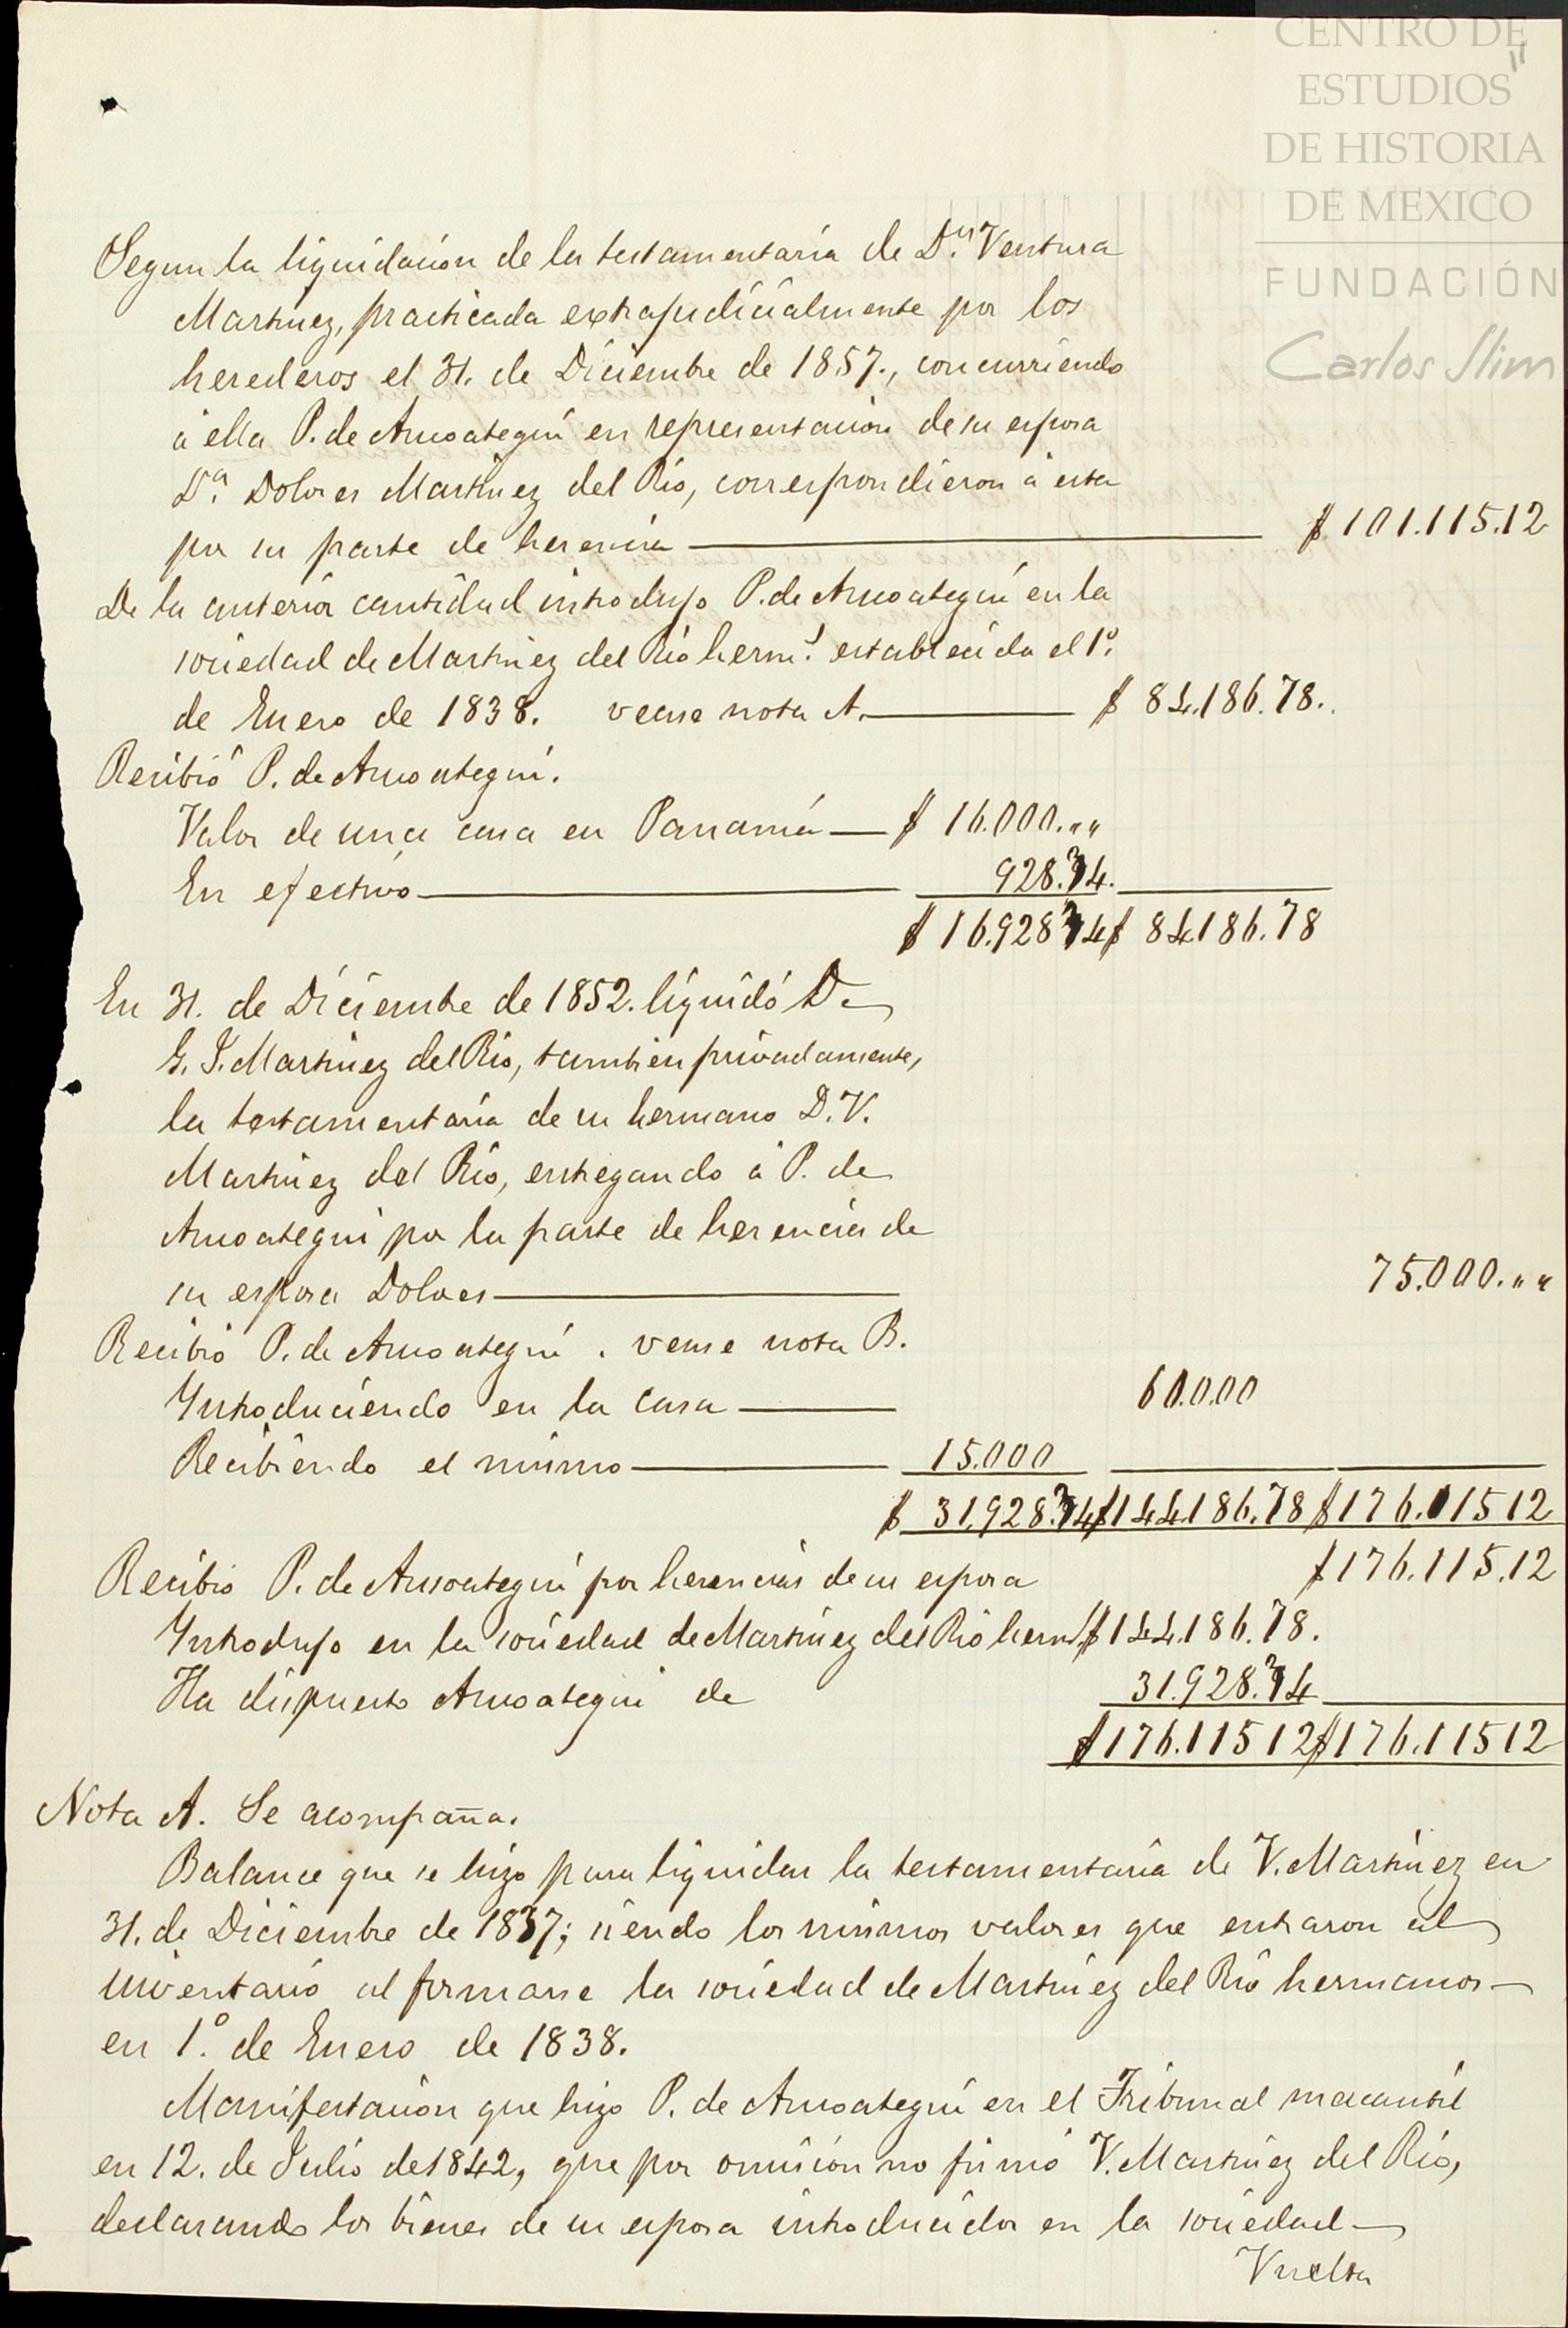 CENTRO DE
ESTUDIOS
DE HISTORIA
DE MEXICO
FUNDACIÓN
Carlos Slim
Segun la liquidacion de la testamentaria de Dn. Ventura
Martinez, practicada extrajudicialmente por los
herederos el 31. de Diciembre de 1857., concurriendo
á ella P. de Ansoategui en representacion de su esposa
Da. Dolores Martinez del Rio, correspondieron á esta
por su parte de herencia $101.115.12
De la anterior cantidad introdujo P. de Ansoategui en la
sociedad de Martinez del Rio herms. establecida el 1o.
de Enero de 1838. vease nota A. $ 84.186.78.
Recibió P. de Ansoategui.
Valor de una casa en Panamá $ 16.000.,,
En efectivo 928.34.
$ 16.928 34 $ 84186.78
En 31. de Diciembre de 1852. liquidó D.
G. J. Martinez del Rio, tambien privadamente,
la testamentaria de su hermano D. V.
Martinez del Rio, entregando á P. de
Ansoategui por la parte de herencia de
su esposa Dolores 75.000.,,
Recibió P. de Ansoategui. vease nota B.
Introduciendo en la casa 60.000
Recibiendo el mismo 15.000
$ 31.928.34 $144.186.78 $176.11512
Recibió P. de Ansoategui por herencias de su esposa $176.115.12
Introdujo en la sociedad de Martinez del Rio herms. $144.186.78.
Ha dispuesto Ansoategui de 31.928.34
$176.11512 $176.11512
Nota A. Se acompaña.
Balance que se hizo para liquidar la testamentaria de V. Martinez en
31. de Diciembre de 1837; siendo los mismos valores que entraron al
inventario al formarse la sociedad de Martinez del Rio hermanos
en 1o. de Enero de 1838.
Manifestacion que hizo P. de Ansoategui en el Tribunal mercantil
en 12. de Julio de 1842, que por omision no firmó V. Martinez del Rio,
declarando los bienes de su esposa introducidos en la sociedad
Vuelta